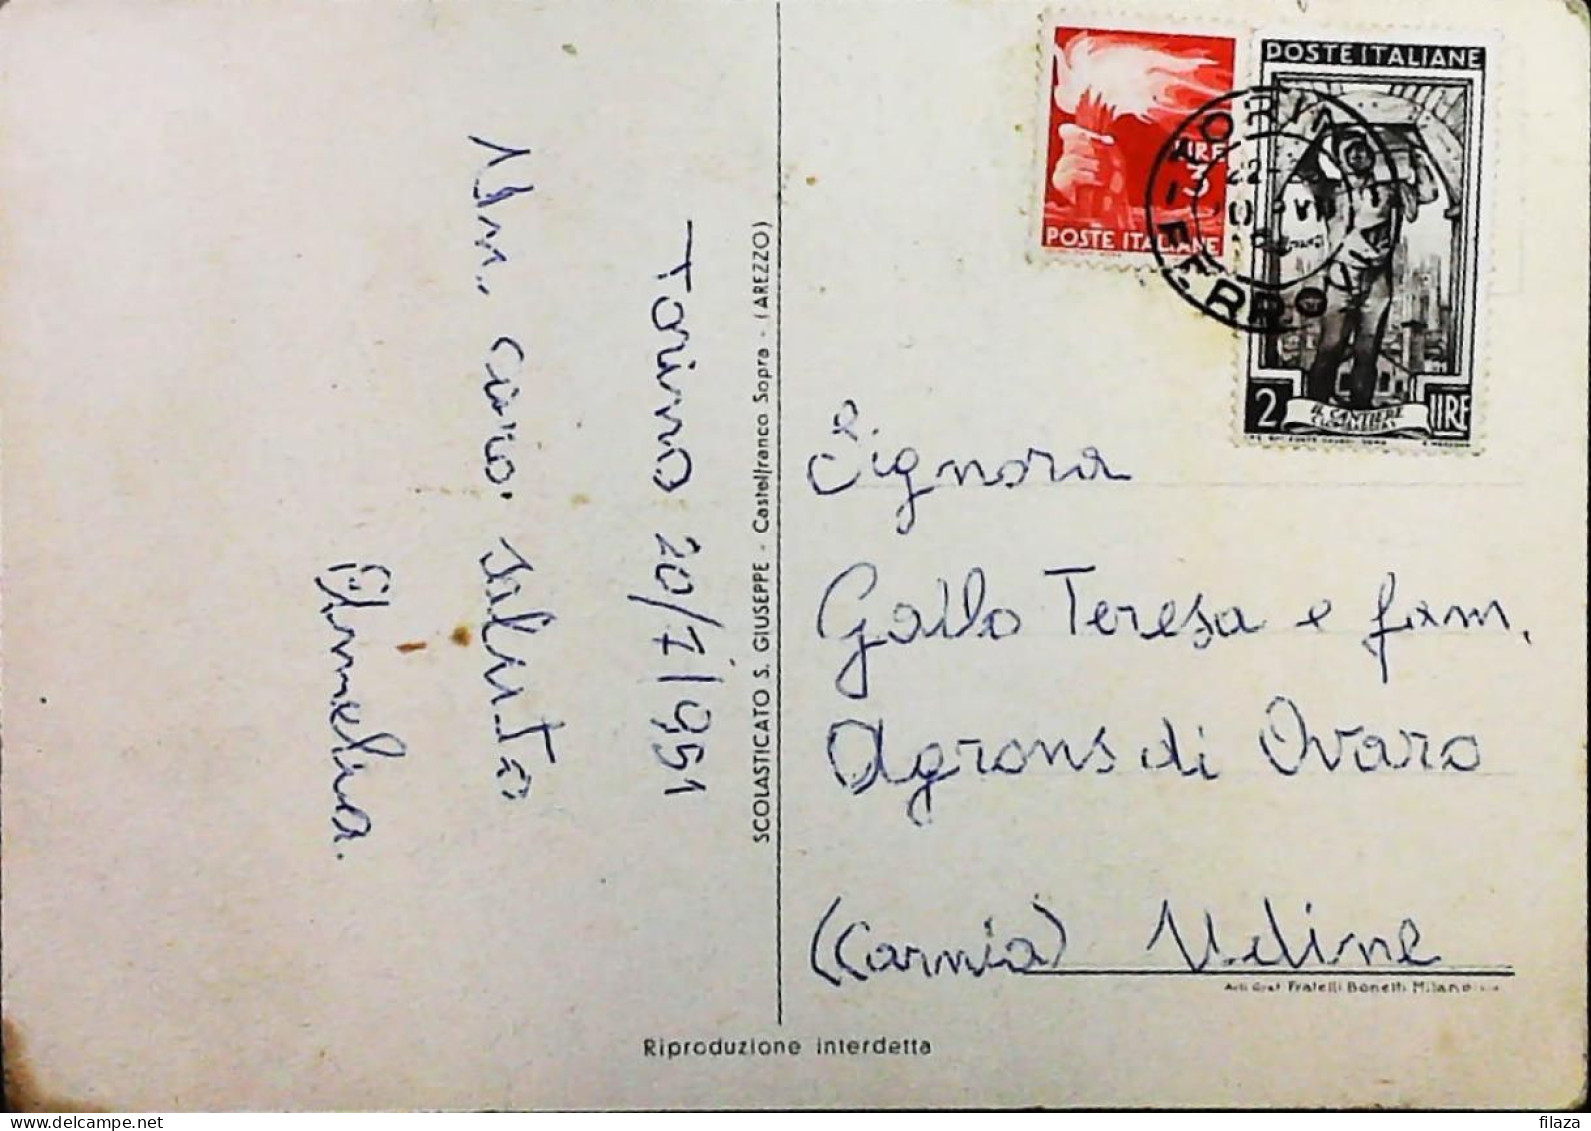 Torino 20/7/951
Un caro saluto
Amelia.
SCOLASTICATO S. GIUSEPPE - Castelfranco Sopra - (AREZZO)
LIRE
3
POSTE ITALIANE
POSTE ITALIANE
2 LIRE
IL CANTIERE
TORINO
FERROVIA
Signora
Gallo Teresa e fam.
Agrons di Ovaro
(Carnia) Udine
Arti Graf. Fratelli Bonetti Milano
Riproduzione interdetta
filaza